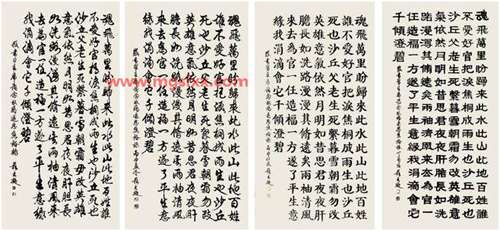 魂飛萬里盼歸來此水此山此地百姓誰
不愛好官把淚焦桐成雨生也沙丘死也
沙丘父老生死繫暮雪朝霜毋改英雄意
氣依然月明如昔思君夜夜肝膽長如洗
路漫漫其修遠矣兩袖清風來去為官一
任造福一方遂了平生意綠我涓滴會它
千頃澄碧
魂飛萬里盼歸來此水此山此地百姓
誰不愛好官把淚焦桐成雨生也沙丘
死也沙丘父老生死繫暮雪朝霜毋改
英雄意氣依然月明如昔思君夜夜肝
膽長如洗路漫漫其修遠矣兩袖清風
來去為官一任造福一方遂了平生意
綠我涓滴會它千頃澄碧
魂飛萬里盼歸來此水此山此地百姓
誰不愛好官把淚焦桐成雨生也沙丘
死也沙丘父老生死繫暮雪朝霜毋改
英雄意氣依然月明如昔思君夜夜肝
膽長如洗路漫漫其修遠矣兩袖清風
來去為官一任造福一方遂了平生意
綠我涓滴會它千頃澄碧
魂飛萬里盼歸來此水此山此地百姓
誰不愛好官把淚焦桐成雨生也
沙丘父老生死繫暮雪朝霜毋改英雄
意氣依然月明如昔思君夜夜肝膽
長如洗路漫漫其修遠矣兩袖清風
來去為官一任造福一方遂了平生意綠
我涓滴會它千頃澄碧